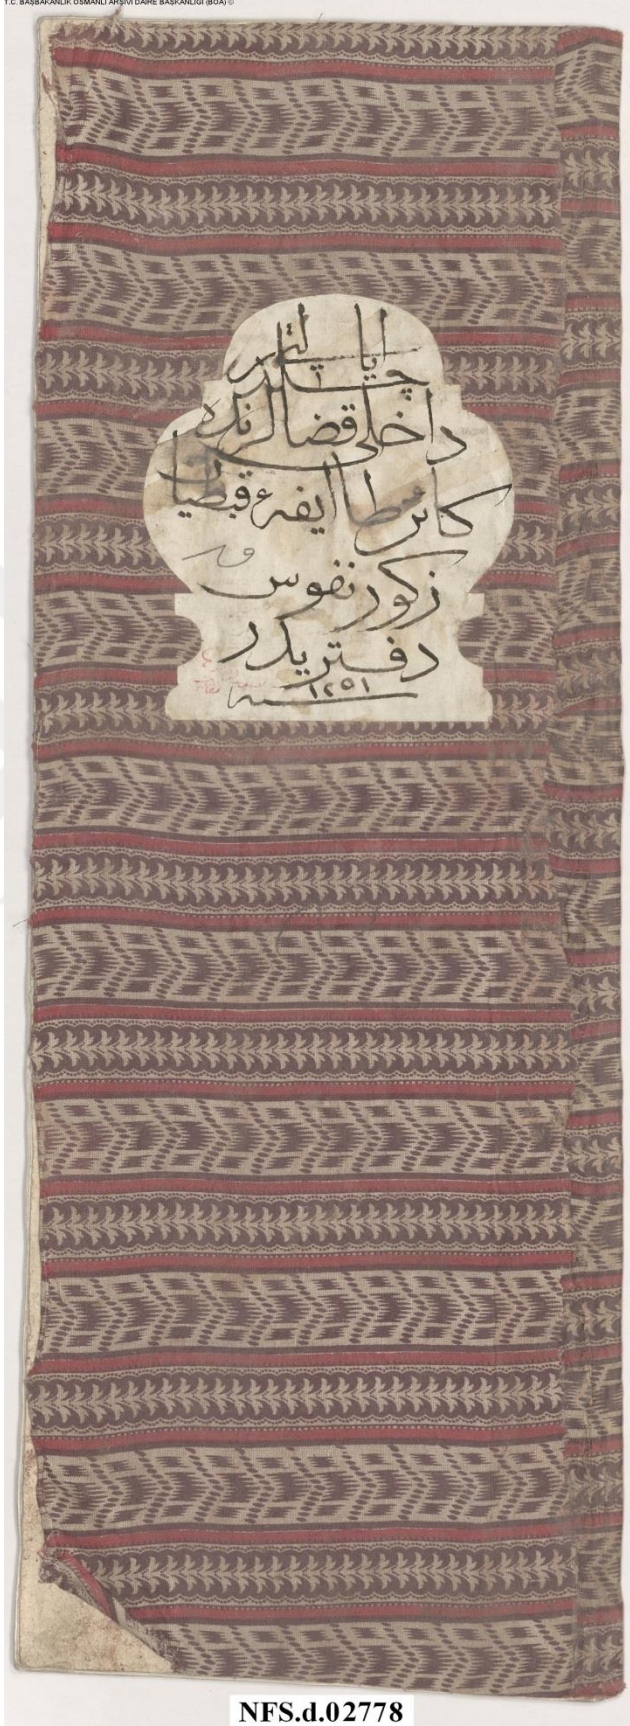 T.C. BAŞBAKANLIK OSMANLI ARŞİVİ DAİRE BAŞKANLIĞI (BOA) ©
ایالت
چلدر
داخلی قضالرنده
کائن طائفهء قبطیان
ذکور نفوس
دفتریدر
سنه ١٢٥١
NFS.d.02778